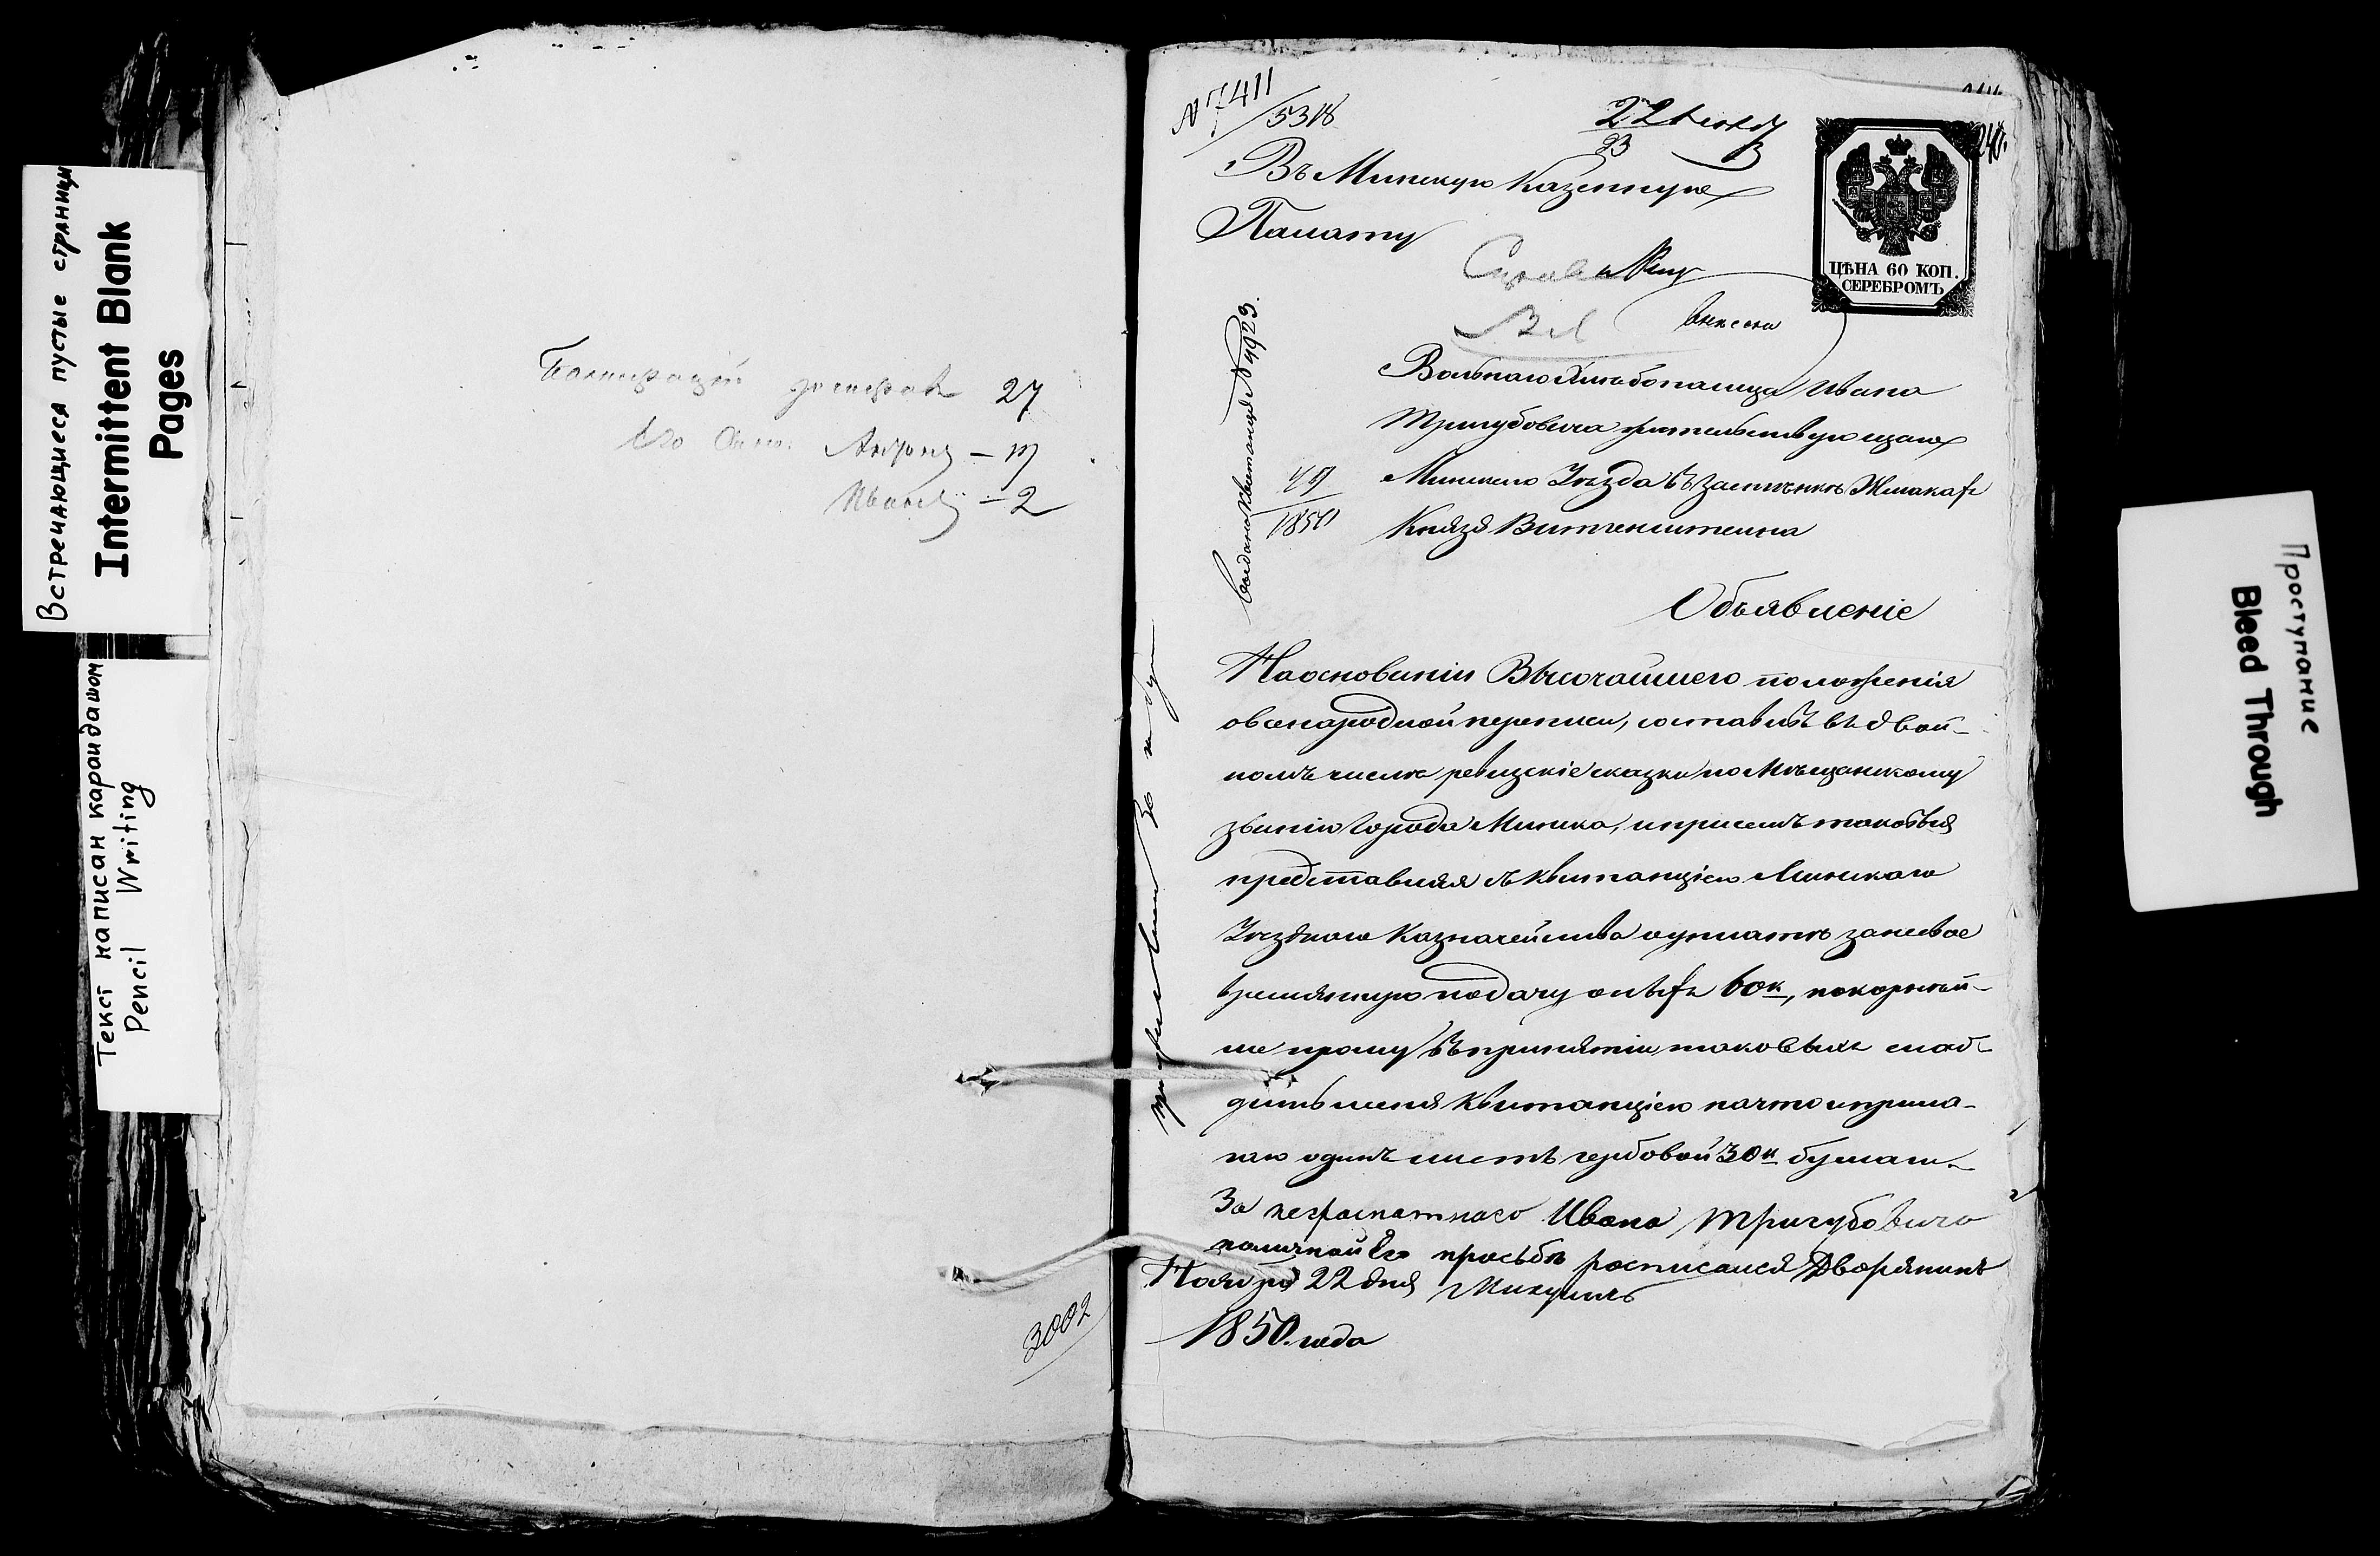 Встречающиеся пустые страници
Intermittent Blank
Pages
Текст написан карандашом
Pencil Writing
27
Его
Антонъ –
Иванъ – 2
3002
№ 7411
5318
22
23
240.
Въ Минскую Казенную
Палату
ЦѢНА 60 КОП.
СЕРЕБРОМЪ
внесена
Выдана Квитанція № 4923.
1850
Вольнаго Хлебопашца Ивана
Тригубовича жительствующаго
Минскаго Уѣзда въ застѣнкѣ
Князя Витгенштеина
Объявленіе
На основаніи Высочайшаго положенія
о всенародной переписи, составивъ въ двой-
номъ числѣ ревизскіе сказки по Мѣщанскому
званію Города Минска, и при семъ таковыя
представляя съ квитанціею Минскаго
Уѣзднаго Казначейства о уплатѣ за несвое
времянную подачу оныхъ 60к, покорнѣй-
ше прошу въ принятіи таковыхъ снаб-
дить меня квитанціею на что и прила-
гаю одинъ листъ гербовой 30к бумаги.
За неграматнаго Ивана Тригубовича
по личной Его просьбѣ росписался Дворянинъ
Ноября 22 дня Микулинъ
1850. года
Проступание
Bleed Through